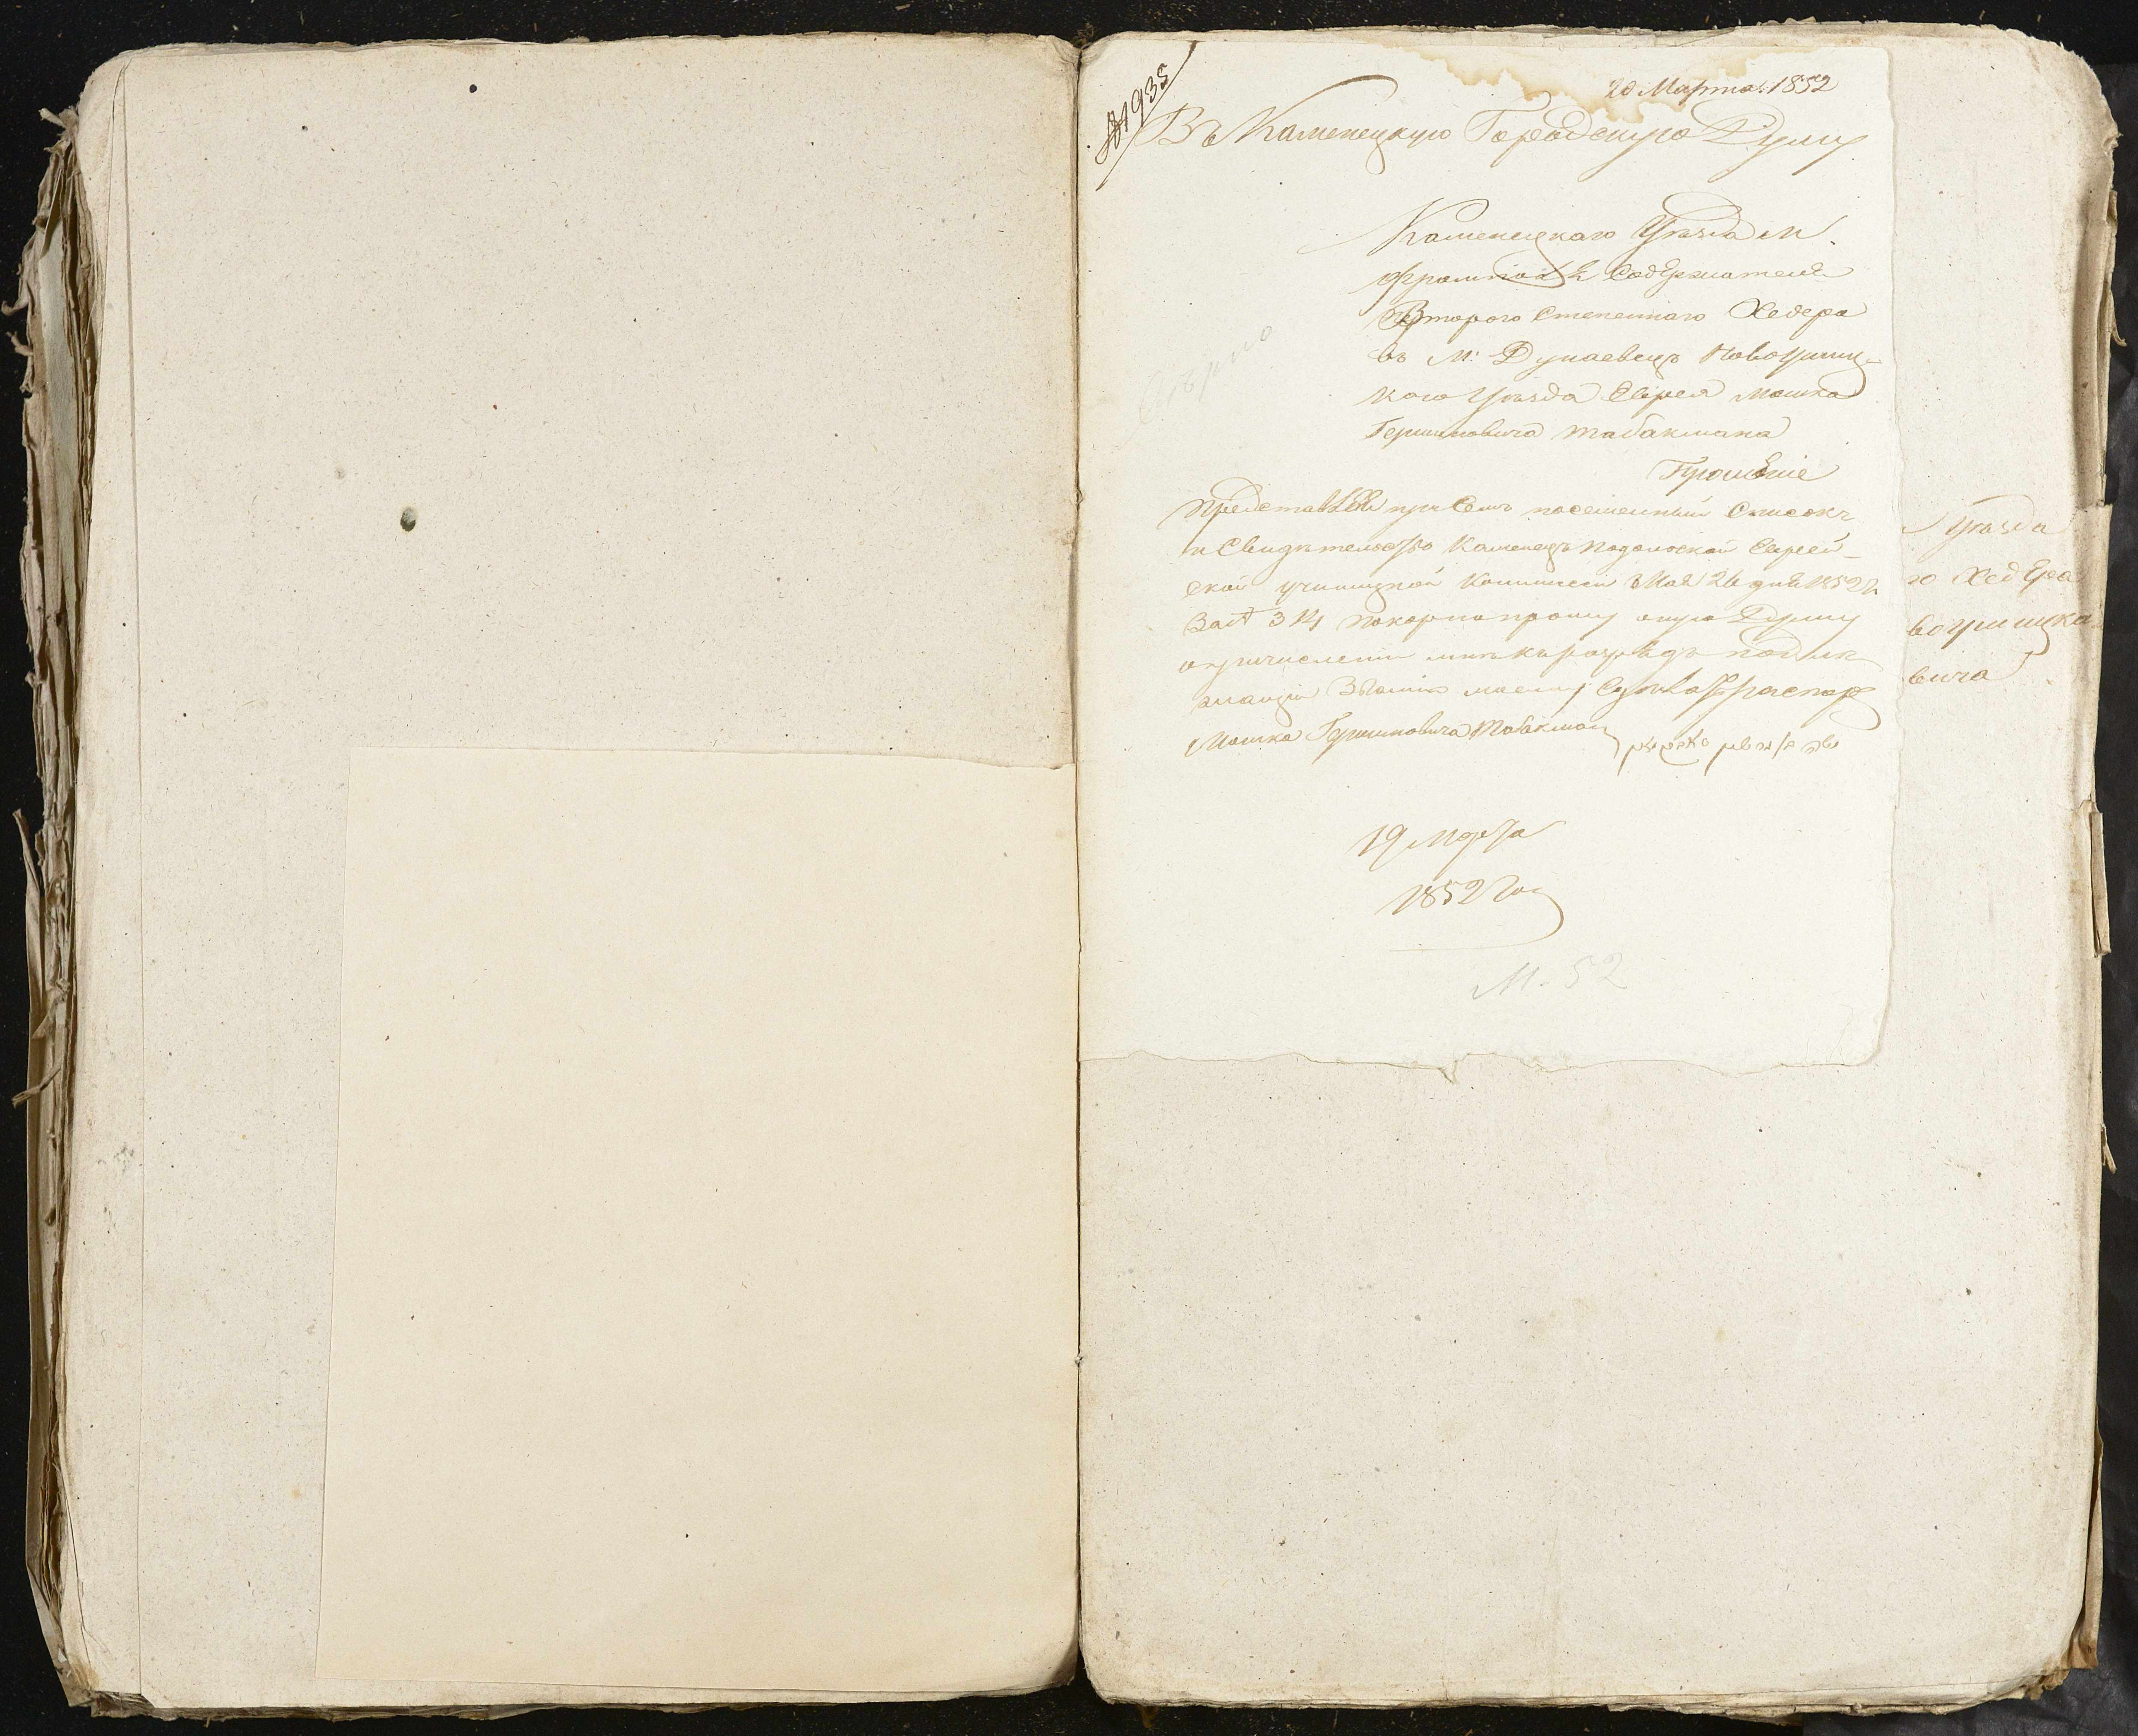 № 1935
20 Марта 1852
Въ Каменецкую Городскую Думу
Каменецкаго Уѣзда м.
Фрампола Содержателя
Второго Степеннаго Хедера
въ М: Дунаевецъ Новоушиц-
кого Уѣзда Еврея Мошка
Гершковича Табакмана
Прошеніе
Представляя при Семъ посемейный Списокъ
и Свидѣтельство Каменецъ Подольской Еврей-
ской училищной Коммисеи Мая 26 дня 1852 г.
За № 314 покорно прошу оную Думу
о причислении мнѣ къ розрядъ подлѣ
жащій званію моему
Мошка Гершковича Табакман
19 Марта
1852 год
М. 52
Уѣзда
го Хедера
воушицка
вича